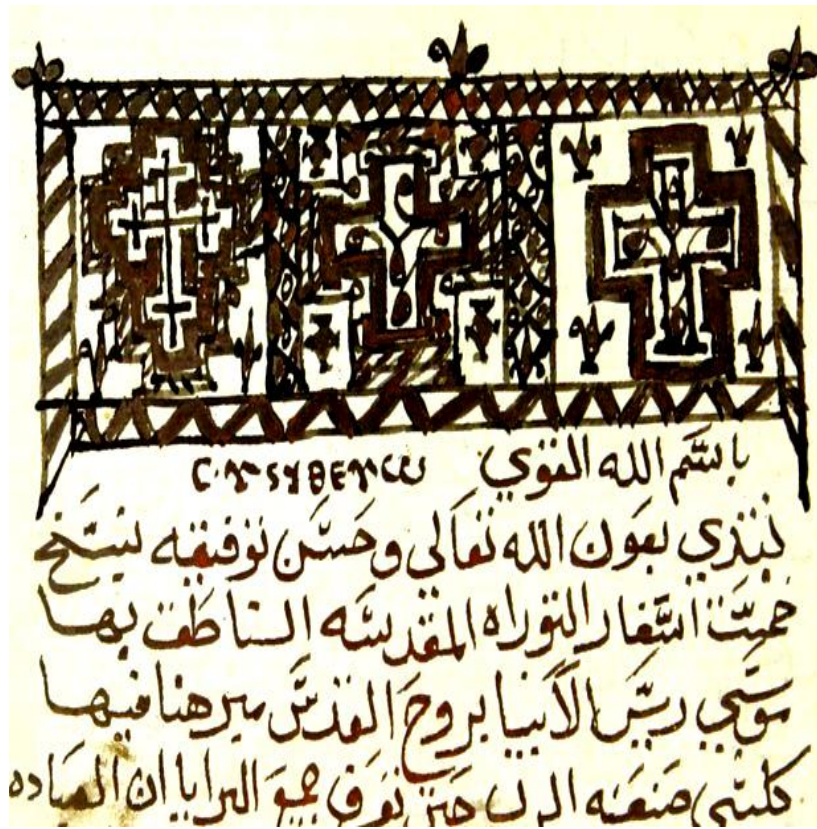 باسم الله القوي
نبتدي بعون الله تعالي وحسن توفيقه بنسخ
خمسة اسفار التوراه المقدسه الناطق بها
موسي ريس الأنبيا بروح القدس مبرهنا فيها
كلشي صنعه الرب جميع البرايا ان العباده